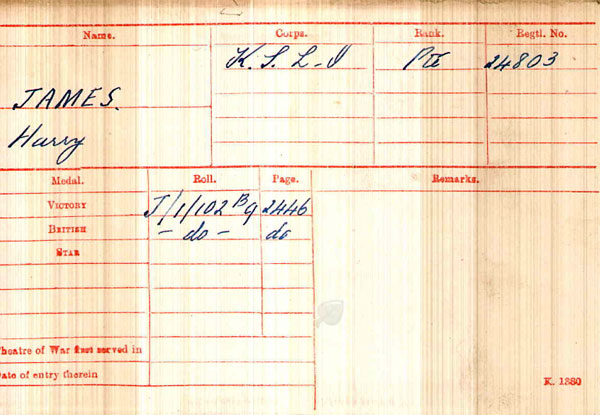 Name. Corps. Rank. Regtl. No.
K. S. L. I Pte 24803
JAMES.
Harry
Medal. Roll. Page. Remarks.
VICTORY J/1/102 B9 2446
BRITISH - do - do
STAR
Theatre of War first served in
Date of entry therein
K. 1380